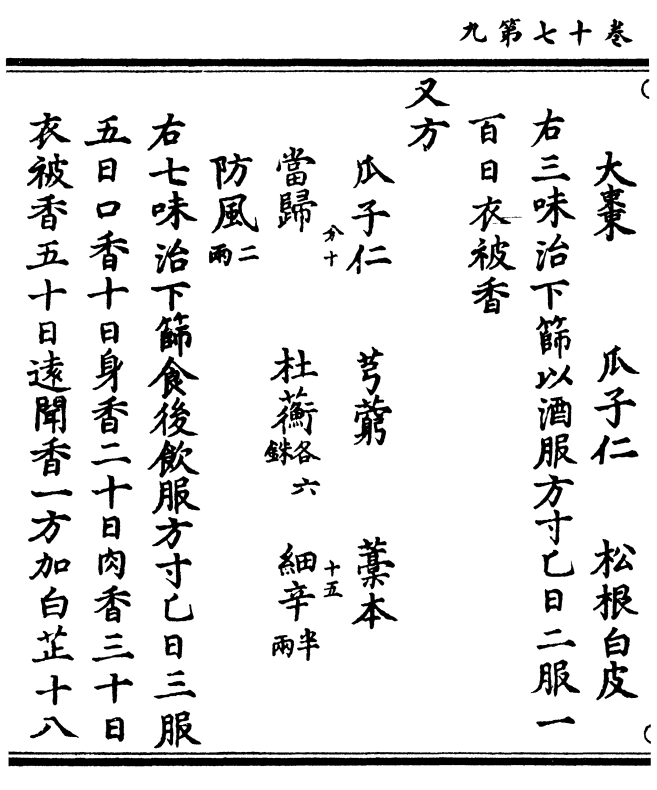 卷十七第九
大棗 瓜子仁 松根白皮
右三味治下篩以酒服方寸匕日二服一
百日衣被香
又方
瓜子仁 芎藭 藁本
分十 十五
當歸 杜蘅各六銖 細辛半兩
防風二兩
右七味治下篩食後飲服方寸匕日三服
五日口香十日身香二十日肉香三十日
衣被香五十日遠聞香一方加白芷十八